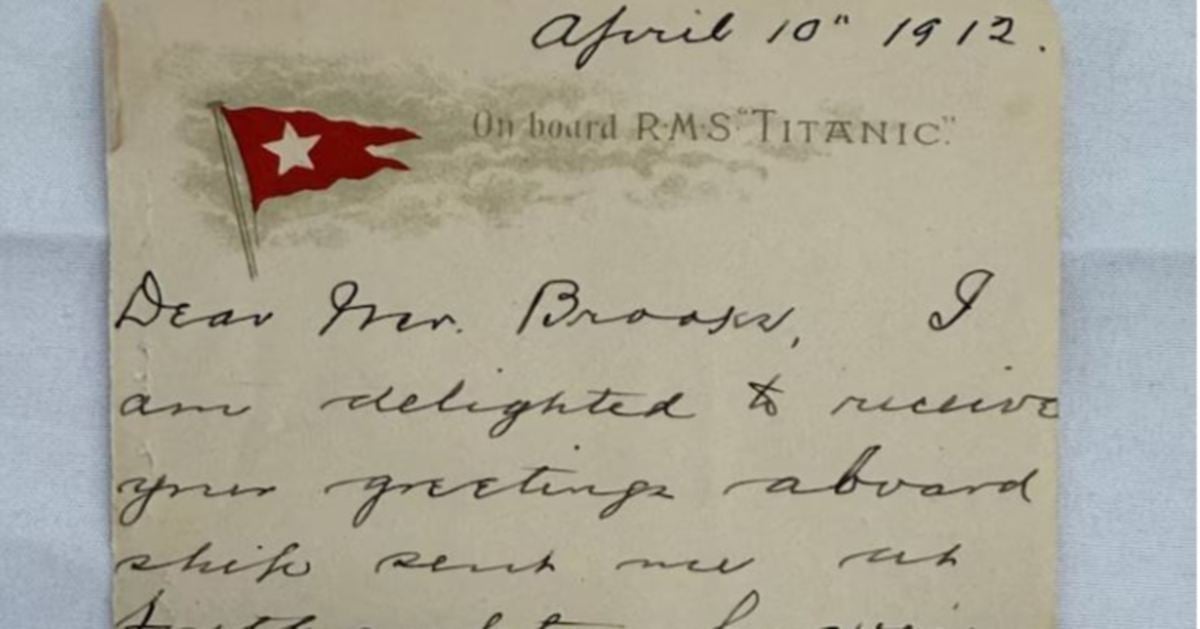 April 10" 1912.
On board R·M·S "TITANIC."
Dear Mr. Brooks, I
am delighted to receive
your greetings aboard
ship sent me at